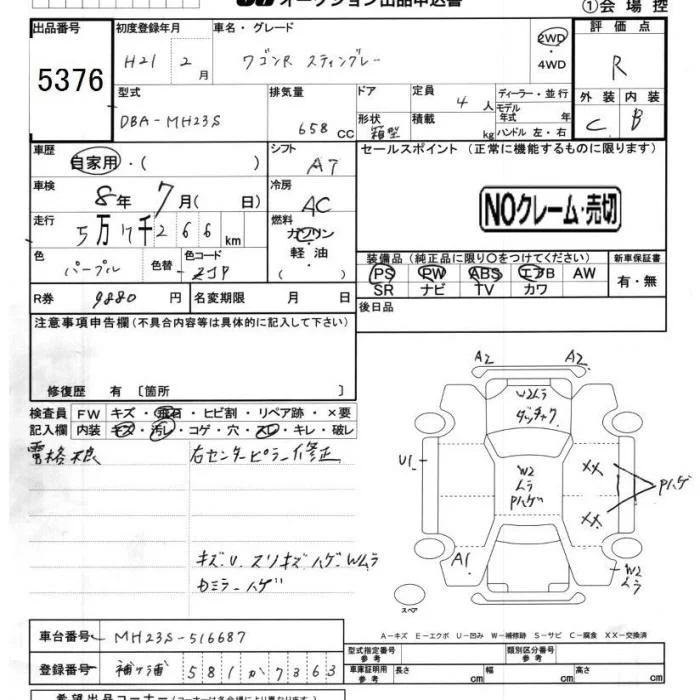 オークション出品申込書
①会場控
出品番号
5376
初度登録年月
H21 2月
車名・グレード
ワゴンR スティングレー
2WD
・
4WD
評価点
R
型式
DBA-MH23S
排気量
658 CC
ドア
形状
箱型
定員
4人
積載
kg
ディーラー・並行
モデル年式 年
ハンドル 左・右
外装
C
内装
B
車歴
自家用・( )
シフト
A7
セールスポイント (正常に機能するものに限ります)
車検
8年 7月( 日)
冷房
AC
NOクレーム・売切
走行
5万7千266km
燃料
ガソリン
・
軽油
( )
色
パープル
色替
色コード
ZJP
装備品 (純正品に限り○をつけてください)
PS PW ABS エアB AW
SR ナビ TV カワ
新車保証書
有・無
R券 9880円
名変期限 月 日
後日品
注意事項申告欄 (不具合内容等は具体的に記入して下さい)
修復歴 有 〔箇所 〕
検査員 FW キズ・飛石・ヒビ割・リペア跡・×要
記入欄 内装 キズ・汚レ・コゲ・穴・スレ・キレ・破レ
右センターピラー修正
キズU スリキズ ハゲ Wムラ
カミラーハゲ
A2 A2
W2ムラ
U1
W2
ムラ
Pハゲ
XX
XX
Pハゲ
A1
W2
ムラ
スペア
A-キズ E-エクボ U-凹み W-補修跡 S-サビ C-腐食 XX-交換済
車台番号 MH23S-516687
登録番号 581 か 7363
型式指定番号 参考
類別区分番号 参考
車庫証明用 参考
長さ cm
幅 cm
高さ cm
希望出品コーナー (コーナーは各会場により異なります)